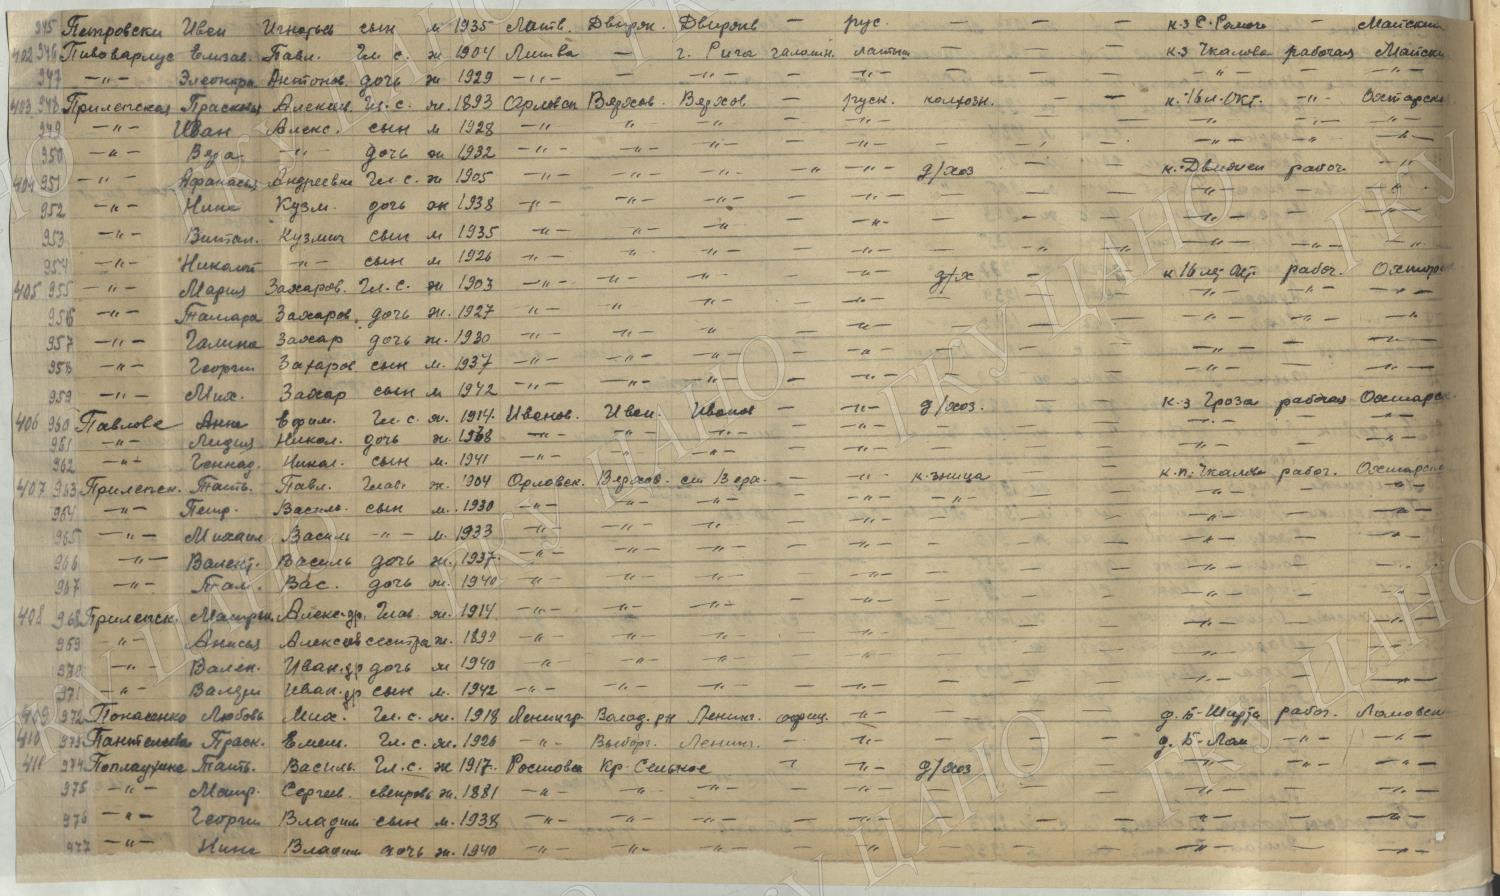 945 Петровски Иван Игнатьев сын м 1935 Латв. Двирян. Двирянв — рус. — — — к-з С. — Майский
402 946 Елизав. Павл. Гл. с. ж 1904 Литва — г. Рига лат — — — к-з Чкалова рабочая Майски
947 —"— Элеонора Антонов. дочь ж 1929 —"— — —"— — —"— — — — —"— —"— —"—
403 948 Прилепская Прасковья Алексеев. Гл. с. ж. 1893 Орловск Вязков. Вязков — русск. колхозн. — — к. 16 л. Окт. —"— Охтарска
949 —"— Иван Алекс. сын м 1928 —"— —"— —"— — —"— — — — —"— —"— —"—
950 —"— Вера —"— дочь ж 1932 —"— —"— —"— — —"— — — — —"— —"— —"—
404 951 —"— Афанасья Андреевна Гл. с. ж 1905 —"— —"— —"— —"— —"— д/хоз — — рабоч. —"—
952 —"— Нина Кузм. дочь ж 1938 —"— —"— —"— — —"— — — — —"— — —"—
953 —"— Витал. Кузмич сын м 1935 —"— —"— —"— — —"— — — — —"— — —"—
954 —"— Николай —"— сын м 1926 —"— —"— —"— — —"— — —"— — —"— —"— —"—
405 955 —"— Мария Захаров. Гл. с. ж 1903 —"— —"— —"— — —"— д/х — — к 16 лет Окт. рабоч.
956 —"— Тамара Захаров. дочь ж. 1927 —"— —"— —"— — —"— — — — —"— —"— —"—
957 —"— Галина Захар дочь ж. 1930 —"— —"— —"— — —"— — — — —"— —"— —"—
958 —"— Георгий Захаров сын м. 1937 —"— —"— —"— — —"— — — — —"— — —"—
959 —"— Мих. Захар сын м 1942 —"— —"— —"— — —"— — — — —"— — —"—
406 960 Павлова Анна Ефим. Гл. с. ж. 1914. Иванов. Иван. Иванов — —"— д/хоз. — — к-з Гроза рабочая Охтарск.
961 —"— Лидия Никол. дочь ж. 1938 —"— —"— —"— — —"— — — — —"— — —"—
962 —"— Геннад. Никол. сын м. 1941 —"— —"— —"— — —"— — — — —"— — —"—
407 963 Прилепск. Тать. Павл. Глав. ж. 1904 Орловск. Вязков. — —"— к-зница — — к.п. Чкалова рабоч. Охтарска
964 —"— Петр. Василь. сын м. 1930 —"— —"— —"— — —"— —"— — — —"— — —"—
965 —"— Михаил Василь —"— м. 1933 —"— —"— —"— — —"— — — — —"— — —"—
966 —"— Валент. Василь дочь ж. 1937. —"— —"— —"— — —"— — — — —"— — —"—
967 —"— Там. Вас. дочь ж. 1940 —"— —"— —"— — —"— — — — —"— — —"—
408 968 Прилепск. Матрен. Алекс-др. Глав ж. 1914 —"— —"— —"— — —"— — — — —"— — —"—
969 —"— Анисья Алексеев сестра ж. 1899 —"— —"— —"— — —"— — — — —"— — —"—
970 —"— Вален. Иван. др дочь ж 1940 —"— —"— —"— — —"— — — — —"— — —"—
971 —"— Иван. др сын м. 1942 —"— —"— —"— — —"— — — — —"— — —"—
409 972 Понасенко Любовь Мих. Гл. с. ж. 1918 Ленингр. Волод. рн Ленинг. —"— — — — д. Б-Шарта рабоч. Ламовск
410 973 Пантелеева Праск. Емел. Гл. с. ж. 1926 —"— Выборг. Ленинг. — —"— — — — д. Б-Лам —"— —"—
411 974 Тать. Василь. Гл. с. ж 1917. Ростовск Кр. Сельное — —"— д/хоз — — —"— —"— —"—
975 —"— Матр. Сергеев. свекровь ж. 1881 —"— —"— —"— — —"— — — — —"— — —"—
976 —"— Георгий Владим сын м. 1938 —"— —"— —"— — —"— — — — —"— — —"—
977 —"— Нина Владим дочь ж. 1940 —"— —"— —"— — —"— — — — —"— — —"—
ГКУ ЦАНО